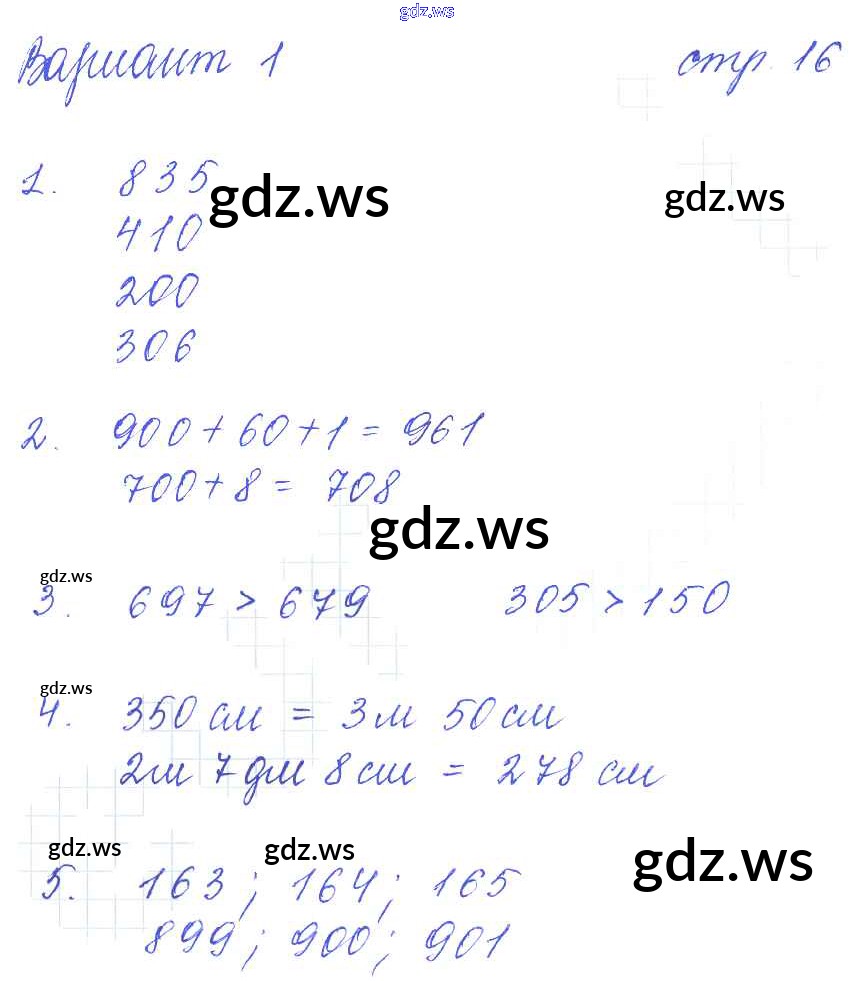 gdz.ws
Вариант 1 стр. 16
1. 835
gdz.ws gdz.ws
410
200
306
2. 900 + 60 + 1 = 961
700 + 8 = 708
gdz.ws
gdz.ws
3. 697 > 679 305 > 150
gdz.ws
4. 350 см = 3м 50 см
2м 7 дм 8 см = 278 см
gdz.ws gdz.ws gdz.ws
5. 163; 164; 165
899; 900; 901